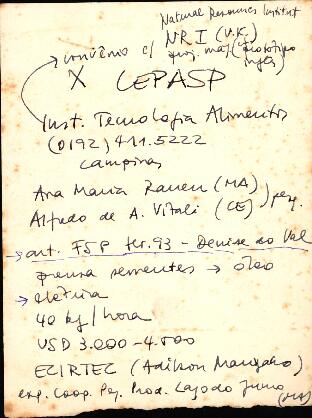 Natural Resources Institut
NRI (U.K.)
→ convênio c/ proj. maq. (protótipo inglês)
X CEPASP
Inst. Tecnologia Alimentos
(0192) 411.5222
Campinas
Ana Maria Rauen (MA)
Alfredo de A. Vitali (CE) ) pesq.
→ art. FSP fev. 93 - Denise do Val
prensa sementes → óleo
→ elétrica
40 kg/hora
USD 3.000 - 4.500
ECIRTEC (Adilson Manzano)
exp. Coop. Peq. Prod. Lago do Junco (MA)